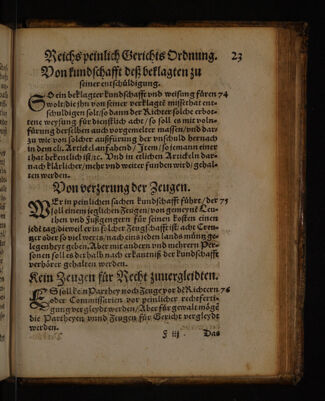 Reichs peinlich Gerichts Ordnung. 23
Von kundschafft deß beklagten zu
seiner entschüldigung.
SO ein beklagter kundschafft vnd weisung füren 74
wolt/ die jhn von seiner verklagtē missethat ent-
schuldigen solt/ so dann der Richter solche erbot-
tene weysung für dienstlich acht/ so soll es mit voln-
fürung derselben auch vorgemelter massen/ vnd dar-
zu wie von solcher außfürung der vnschuld hernach
in dem cli. Artickel anfahend/ Item/ so jemant einer
that bekentlich ist/ etc. Vnd in etlichen Artickeln dar-
nach klärlicher/ mehr vnd weiter funden wird/ gehal-
ten werden.
Von verzerung der Zeugen.
WEr in peinlichen sachen kundschafft führt/ der 75
soll einem jeglichen Zeugen/ von gemeynē Leu-
then vnd Fußgengern für seinen kosten einen
jedē tag/ dieweil er in solcher Zeugschafft ist/ acht Creu-
tzer oder so viel werts/ nach eins jeden lands müntz ge-
legenheyt geben. Aber mit andern vnd mehrern Per-
sonen soll es derhalb nach erkantniß der kundschafft
verhörer gehalten werden.
Kein Zeugen für Recht zuuergleidten.
ES soll kein Parthey noch Zeuge vor dē Richtern 76
oder Commissarien vor peinlicher rechtferti-
gung vergleydt werden/ Aber für gewalt mögē
die Partheyen vnnd Zeugen für Gericht vergleydt
werden.
F iij Das